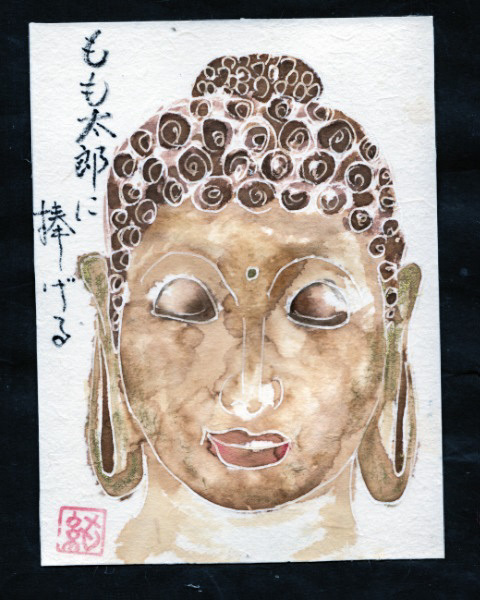 もも太郎に
捧げる